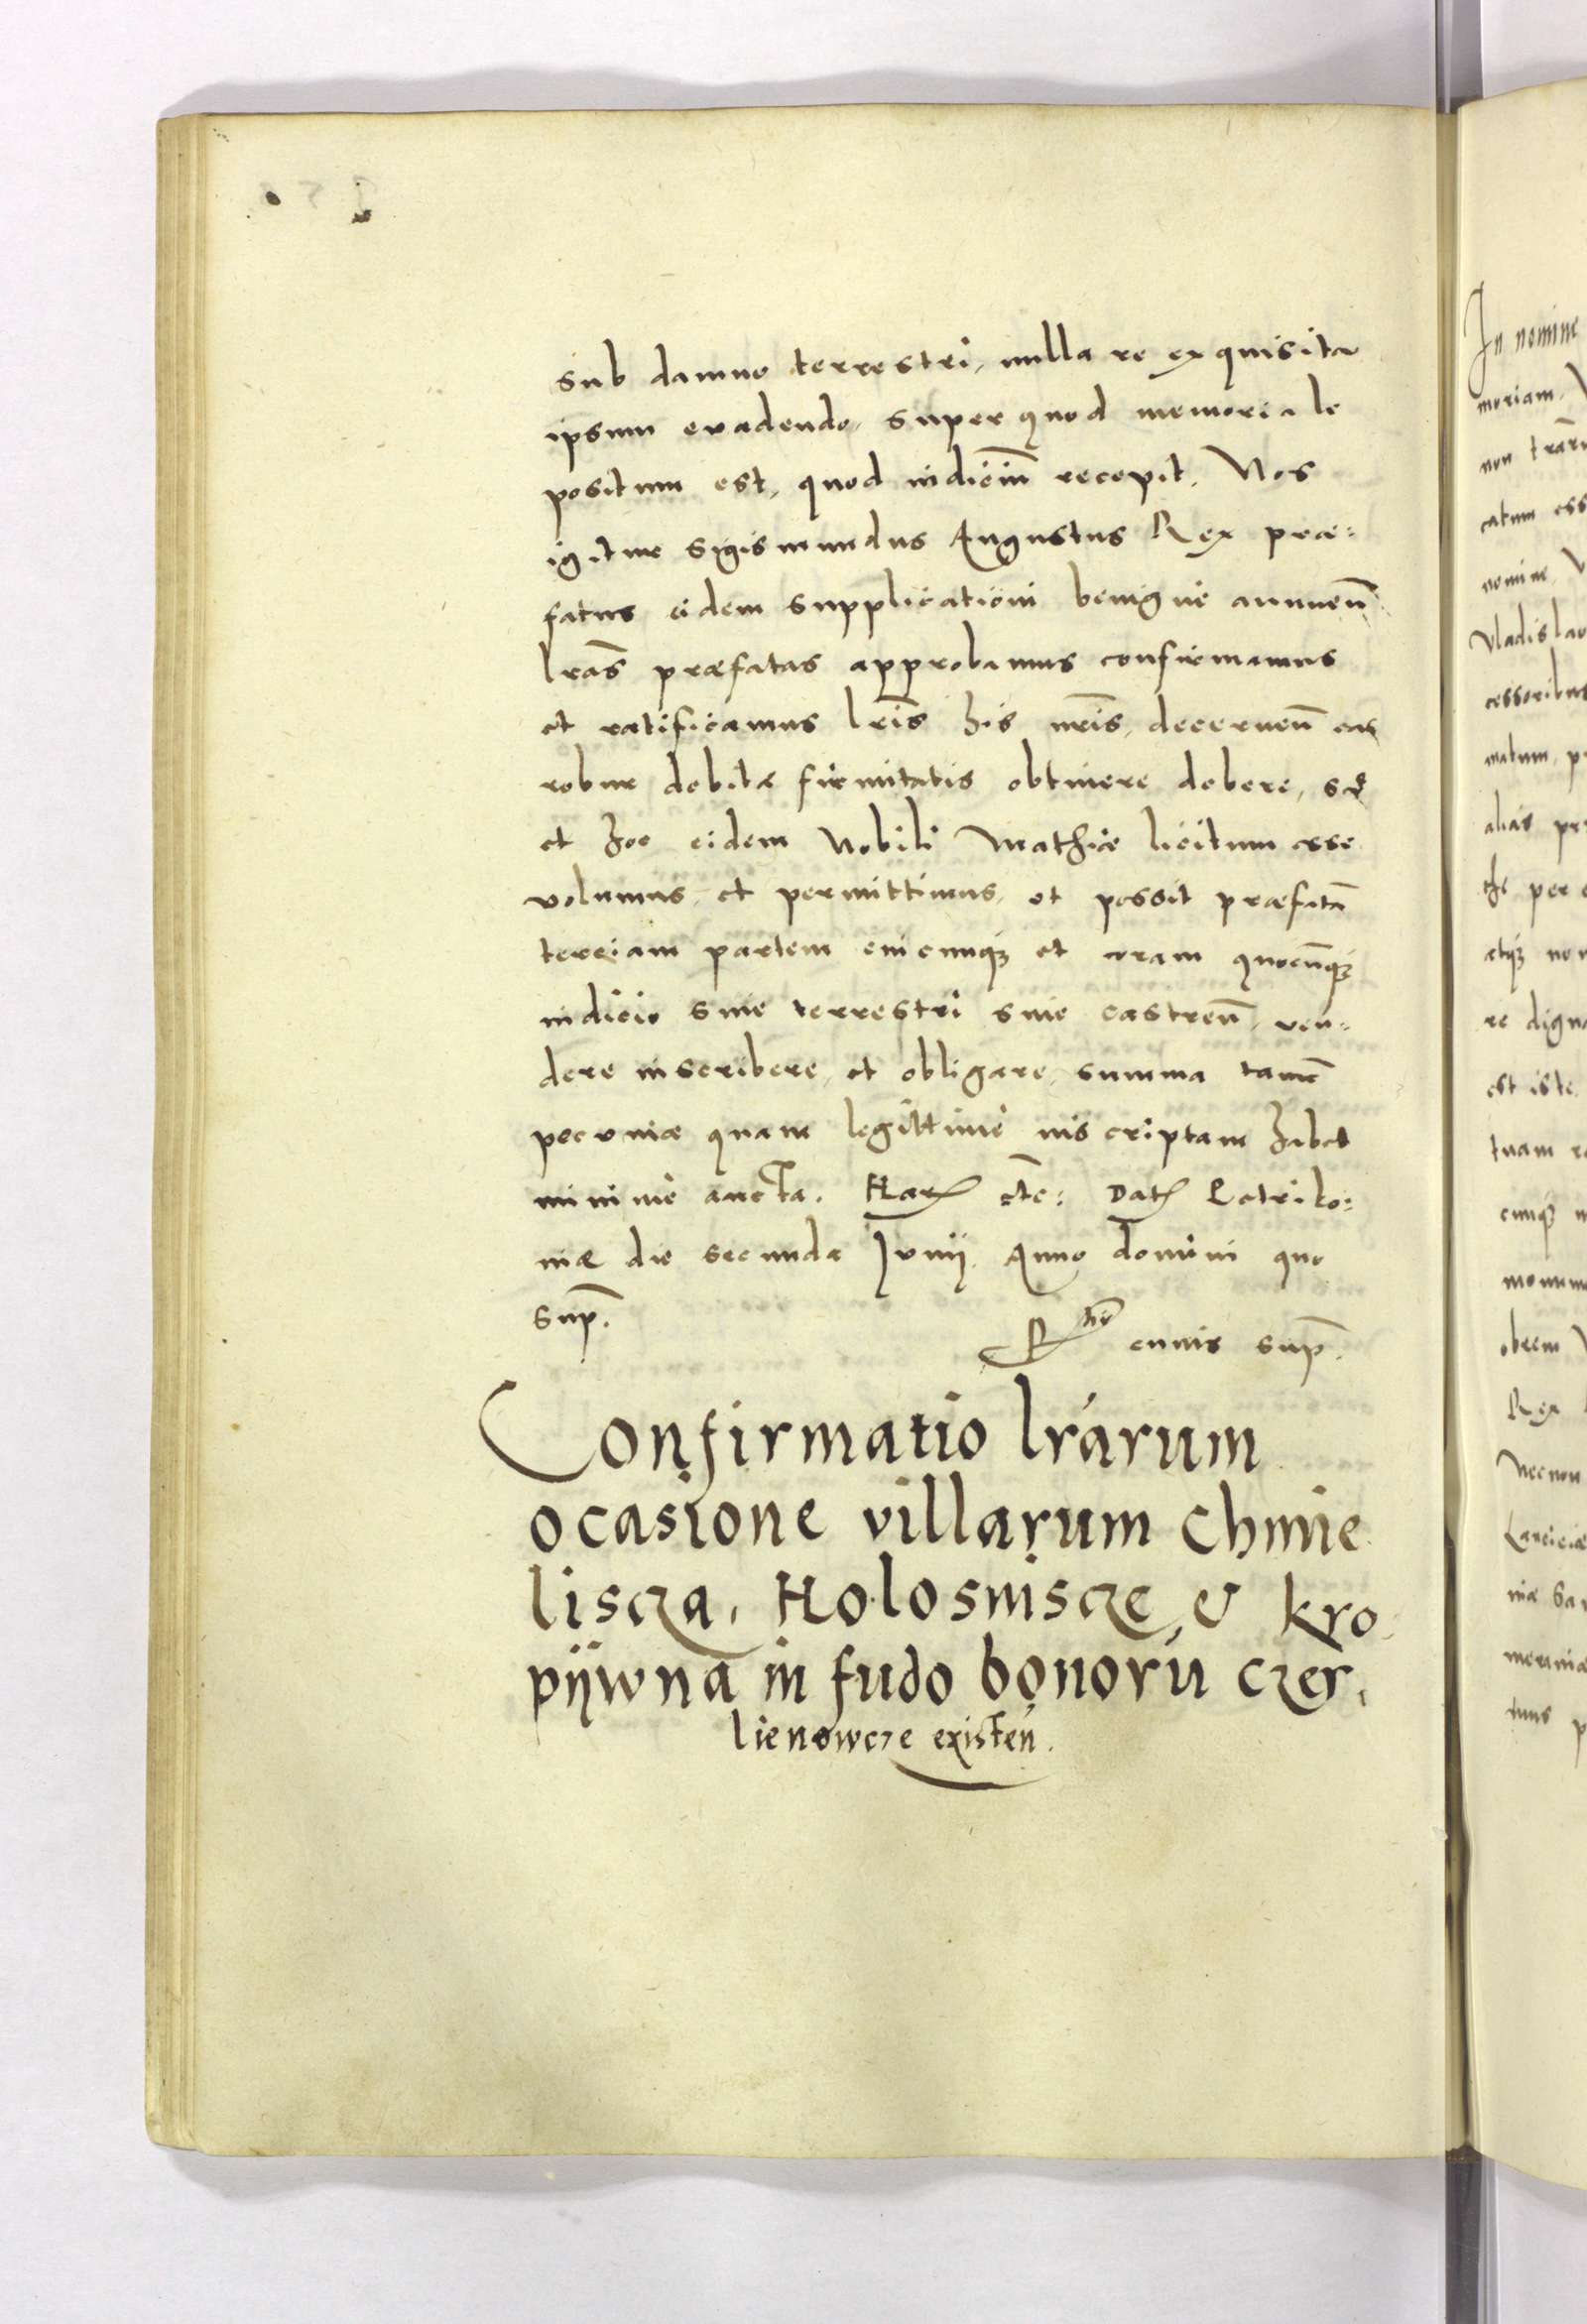 sub damno terrestri, nulla re exquisita
ipsum evadendo, super quod memoriale
positum est, quod iudiciũ recepit. Nos
igitur Sigismundus Augustus Rex præ=
fatus eidem supplicationi benignè annuen̄
l̃ras præfatas approbamus confirmamus
et ratificamus l̃ris his n̄ris, decernen̄ eas
robur debitæ firmitatis obtinere debere, sed
et hoc eidem Nobili Mathiæ licitum esse
volumus, et permittimus, ut possit præfatā
terciam partem cuicunq3 et coram quocūq3
iudicio siue terrestri siue castren̄, ven=
dere inscribere, et obligare, summa tamē
pecuniæ quam legittimè inscriptam habet
minimè aucta. Har̃ etc: Dat̃ Petriko=
niæ die secunda Junij. Anno domini quo
sup̄.
R̃tio cuius sup̄.
Confirmatio l̃rarum
ocasione villarum Chmie
liscza, Holosniscze, et kro
piiwna in fudo bonorũ czer,
lienowcze existeñ.
In nomine
moriam.
non trār
catum ess
nomine
Vladislau
cessoribus
matum, pr
alias pr
the per
atq3 non
re digna
est iste
tuam r
cunq3
monum
obrem
Rex
Necnon
Lanciciæ
niæ
meraniæ